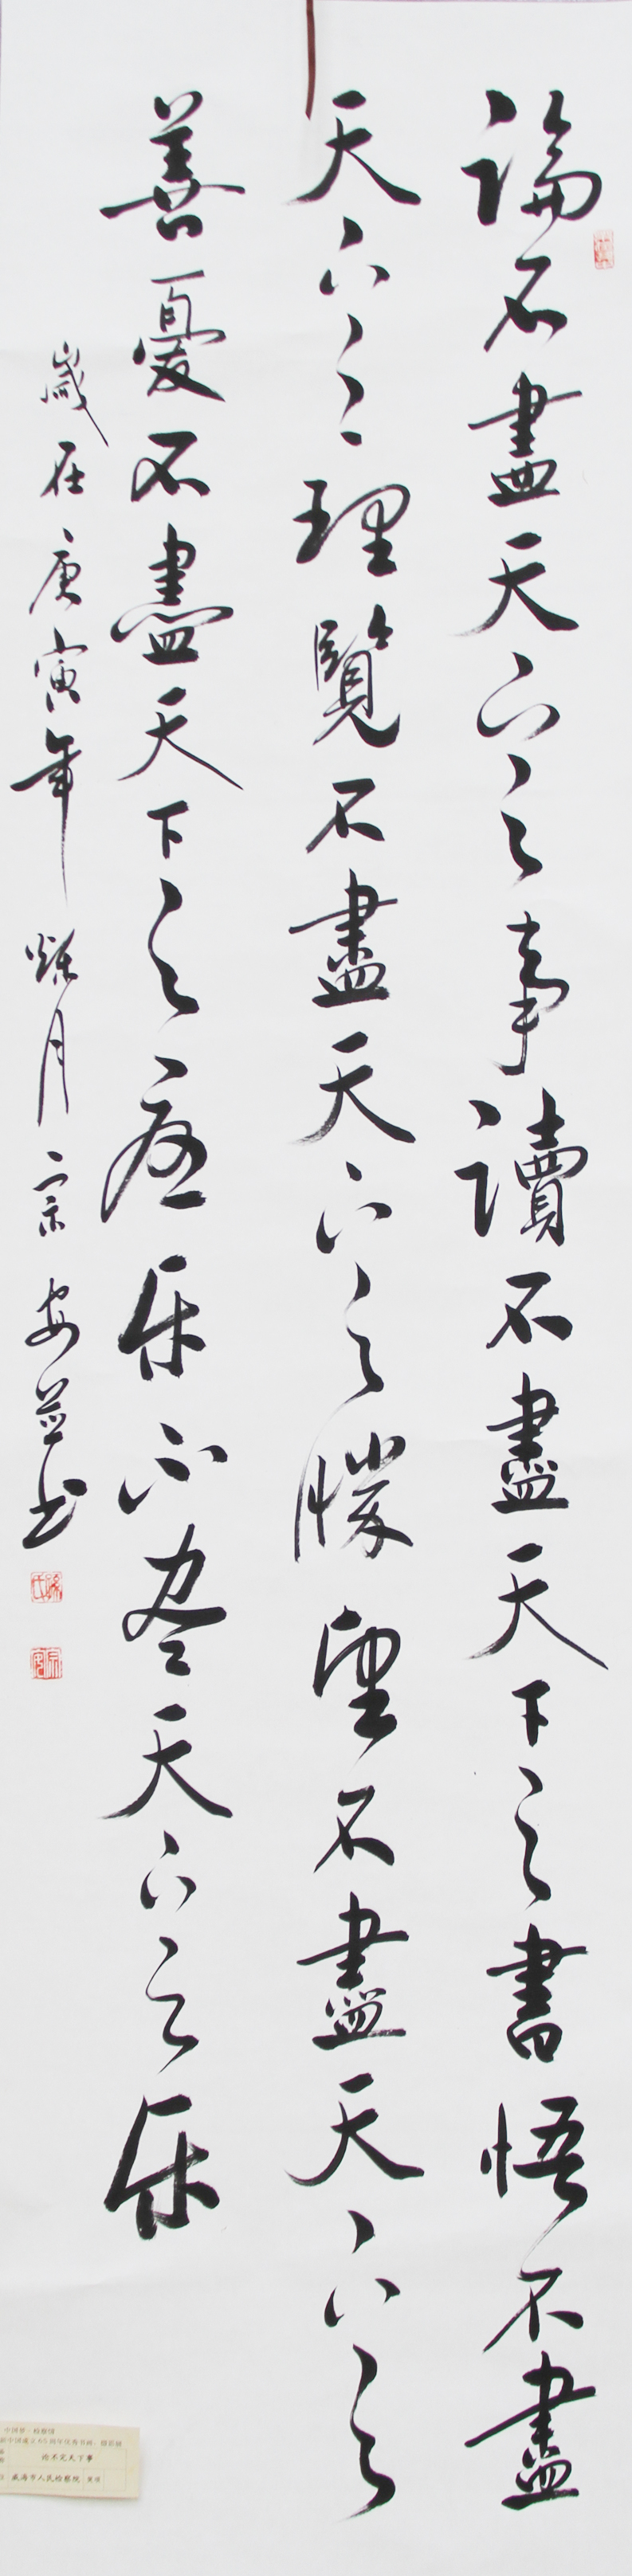 論不盡天下之事讀不盡天下之書悟不盡
天下之理覽不盡天下之勝望不盡天下之
善憂不盡天下之乐不尽天下之乐
歲在庚寅年月宗安书
论不完天下事
威海市人民检察院